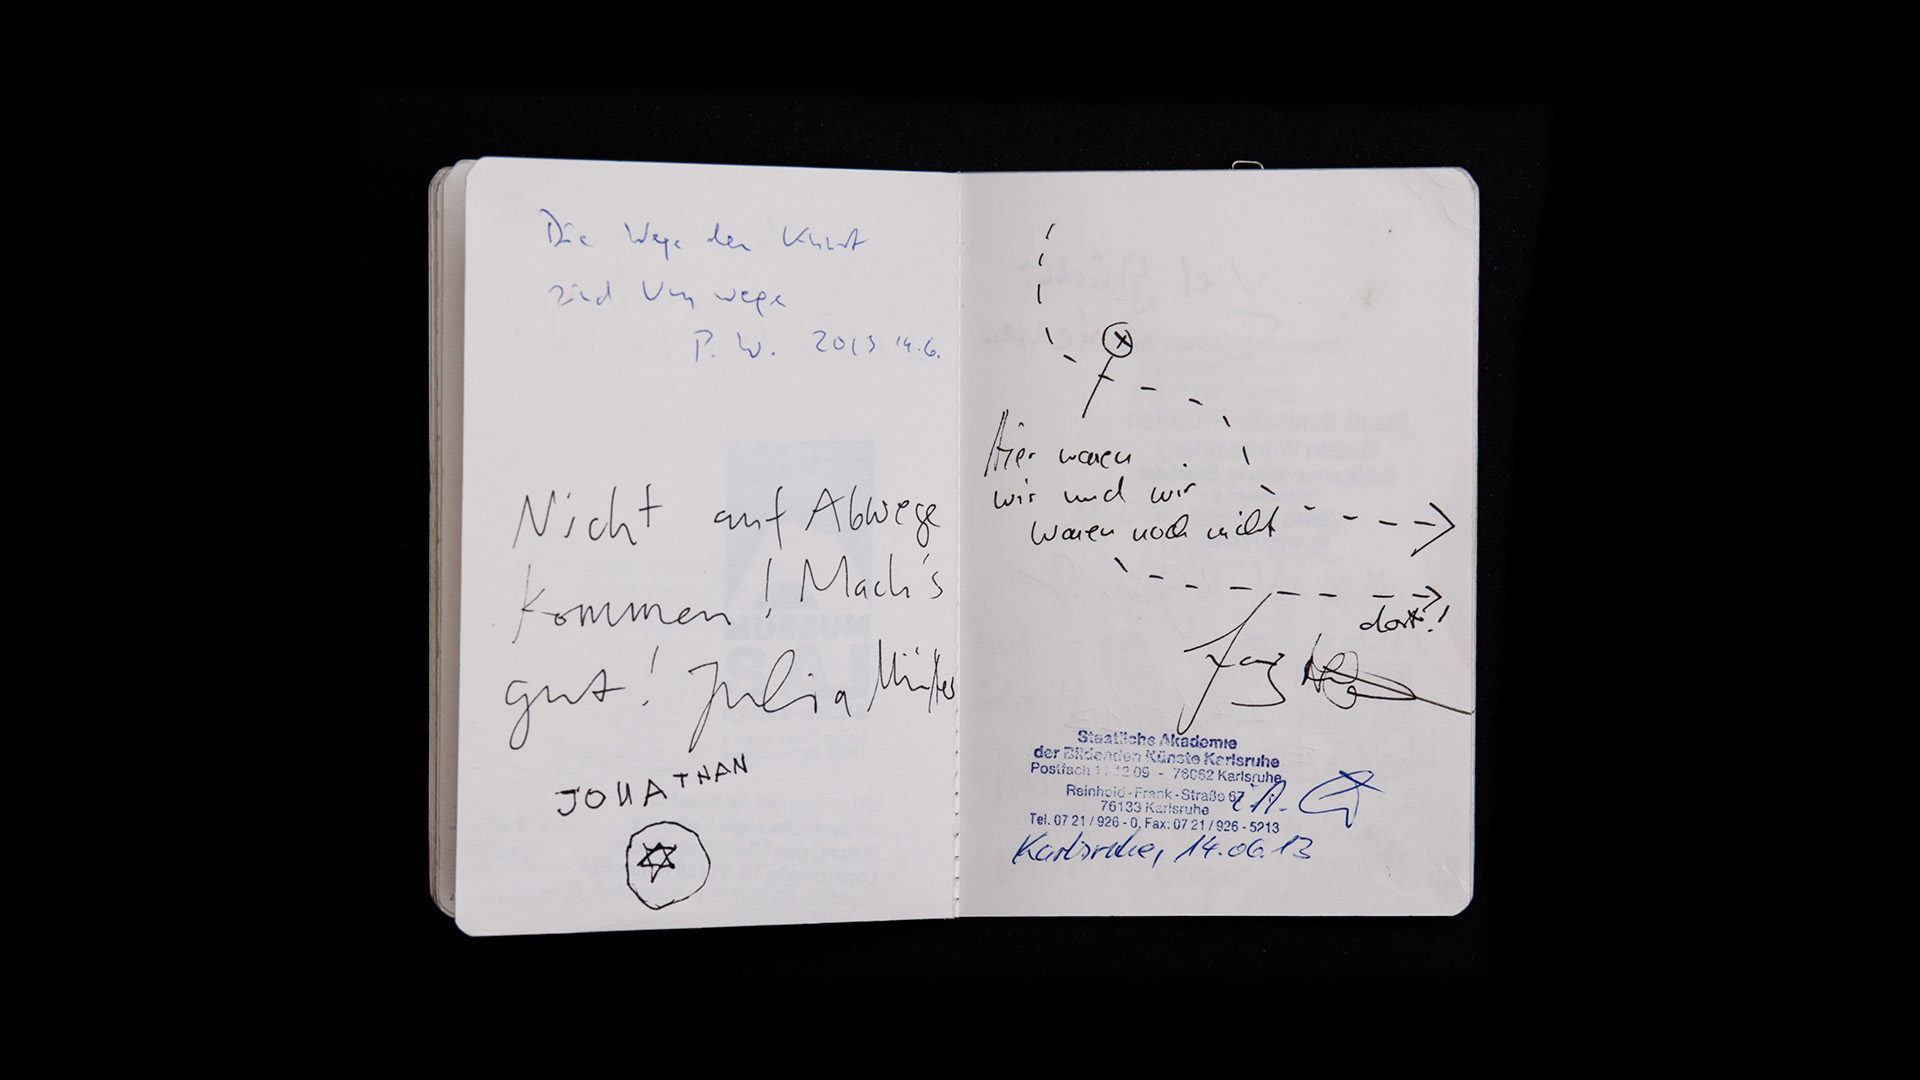 Die Wege der Kunst
sind Umwege
P. W. 2013 14.6.
Nicht auf Abwege
kommen! Mach's
gut! Julia
JONATHAN
Hier waren
wir und wir
waren noch nicht
dort!
Staatliche Akademie
der Bildenden Künste Karlsruhe
Postfach 11 12 09 - 76062 Karlsruhe
Reinhold-Frank-Straße 67
76133 Karlsruhe
Tel. 07 21 / 926 - 0, Fax: 07 21 / 926 - 5213
i.A.
Karlsruhe, 14.06.13